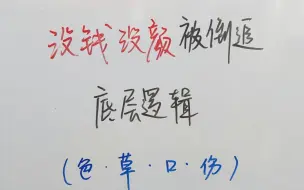 没钱没颜被倒追
底层逻辑
(色·草·口·伤)